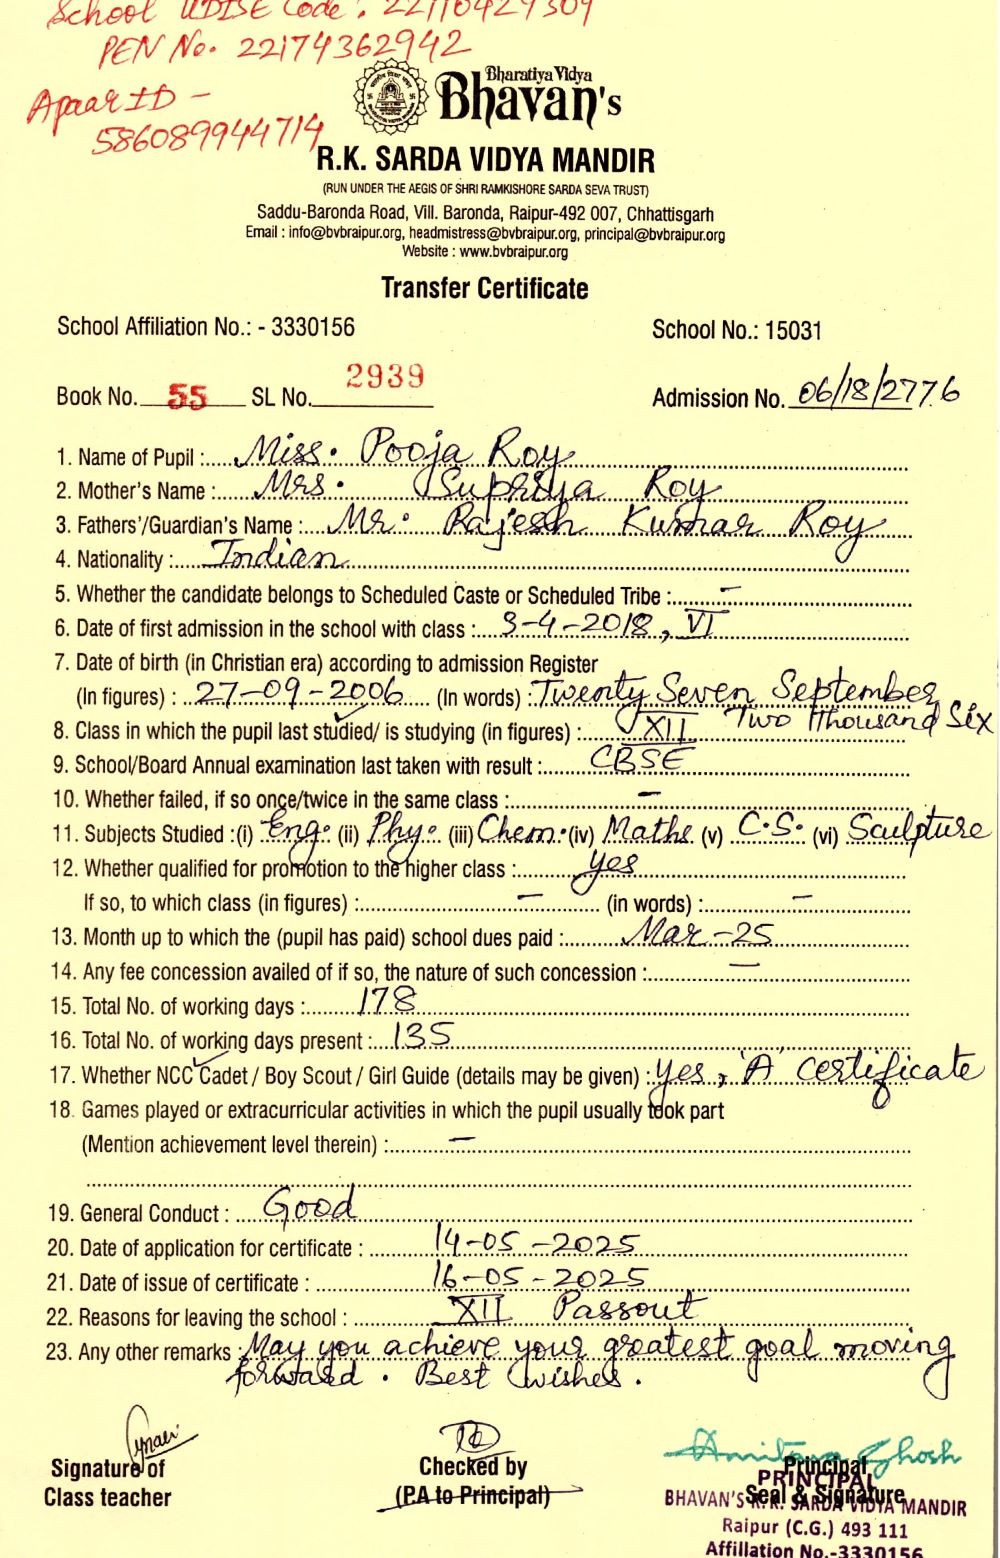 School UDISE Code : 22110429309
PEN No. 22174362942
Apaar ID -
586089944714
Bharatiya Vidya
Bhavan's
R.K. SARDA VIDYA MANDIR
(RUN UNDER THE AEGIS OF SHRI RAMKISHORE SARDA SEVA TRUST)
Saddu-Baronda Road, Vill. Baronda, Raipur-492 007, Chhattisgarh
Email : info@bvbraipur.org, headmistress@bvbraipur.org, principal@bvbraipur.org
Website : www.bvbraipur.org
Transfer Certificate
School Affiliation No.: - 3330156 School No.: 15031
Book No. 55 SL No. 2939 Admission No. 06/18/2776
1. Name of Pupil : Miss. Pooja Roy
2. Mother's Name : Mrs. Supriya Roy
3. Fathers'/Guardian's Name : Mr. Rajesh Kumar Roy
4. Nationality : Indian
5. Whether the candidate belongs to Scheduled Caste or Scheduled Tribe : -
6. Date of first admission in the school with class : 3-4-2018, VI
7. Date of birth (in Christian era) according to admission Register
(In figures) : 27-09-2006 (In words) : Twenty Seven September
Two Thousand Six
8. Class in which the pupil last studied/ is studying (in figures) : XII
9. School/Board Annual examination last taken with result : CBSE
10. Whether failed, if so once/twice in the same class : -
11. Subjects Studied :(i) Eng. (ii) Phy. (iii) Chem. (iv) Maths (v) C.S. (vi) Sculpture
12. Whether qualified for promotion to the higher class : yes
If so, to which class (in figures) : - (in words) : -
13. Month up to which the (pupil has paid) school dues paid : Mar-25
14. Any fee concession availed of if so, the nature of such concession : -
15. Total No. of working days : 178
16. Total No. of working days present : 135
17. Whether NCC Cadet / Boy Scout / Girl Guide (details may be given) : Yes, 'A' certificate
18. Games played or extracurricular activities in which the pupil usually took part
(Mention achievement level therein) : -
19. General Conduct : Good
20. Date of application for certificate : 14-05-2025
21. Date of issue of certificate : 16-05-2025
22. Reasons for leaving the school : XII Passout
23. Any other remarks : May you achieve your greatest goal moving
forward. Best wishes.
Amitava Ghosh
Signature of Checked by Principal
Class teacher (P.A to Principal) Seal & Signature
PRINCIPAL
BHAVAN'S R.K. SARDA VIDYA MANDIR
Raipur (C.G.) 493 111
Affiliation No.-3330156